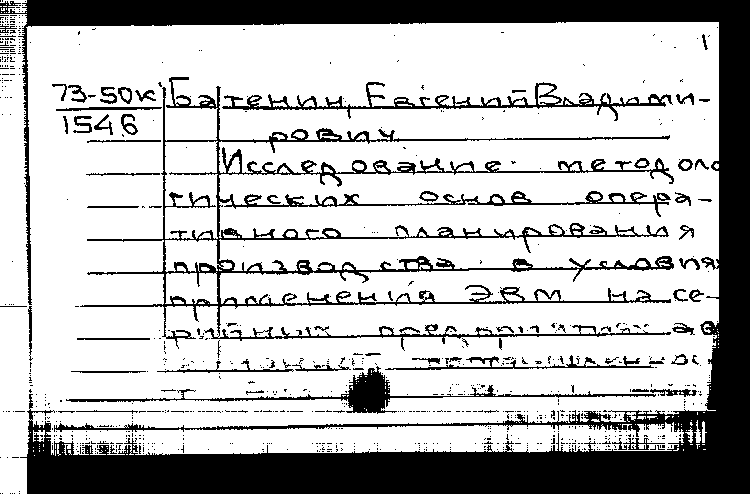 1
73-50к Батенин, Евгений Владими-
1546 рович
Исследование методоло
гических основ опера-
тивного планирования
производства в условиях
применения ЭВМ на се-
рийных предприятиях ав